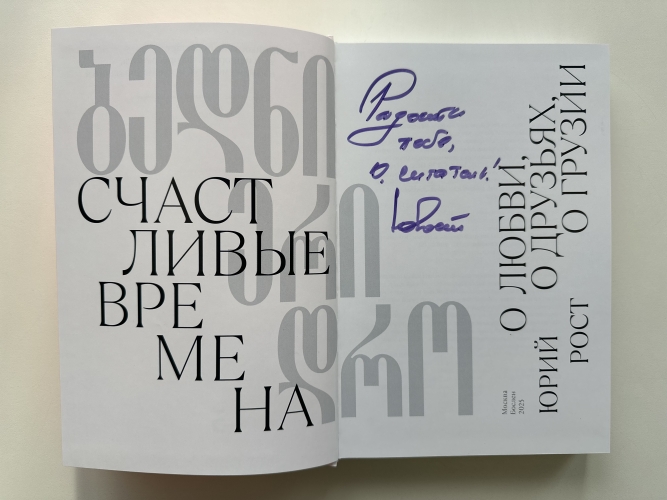 ბედნი
ერი
დრო
СЧАСТ
ЛИВЫЕ
ВРЕ
МЕ
НА
Радости
тебе,
о, читатель!
ЮРост
О ЛЮБВИ,
О ДРУЗЬЯХ,
О ГРУЗИИ
ЮРИЙ
РОСТ
Москва
Бослен
2025